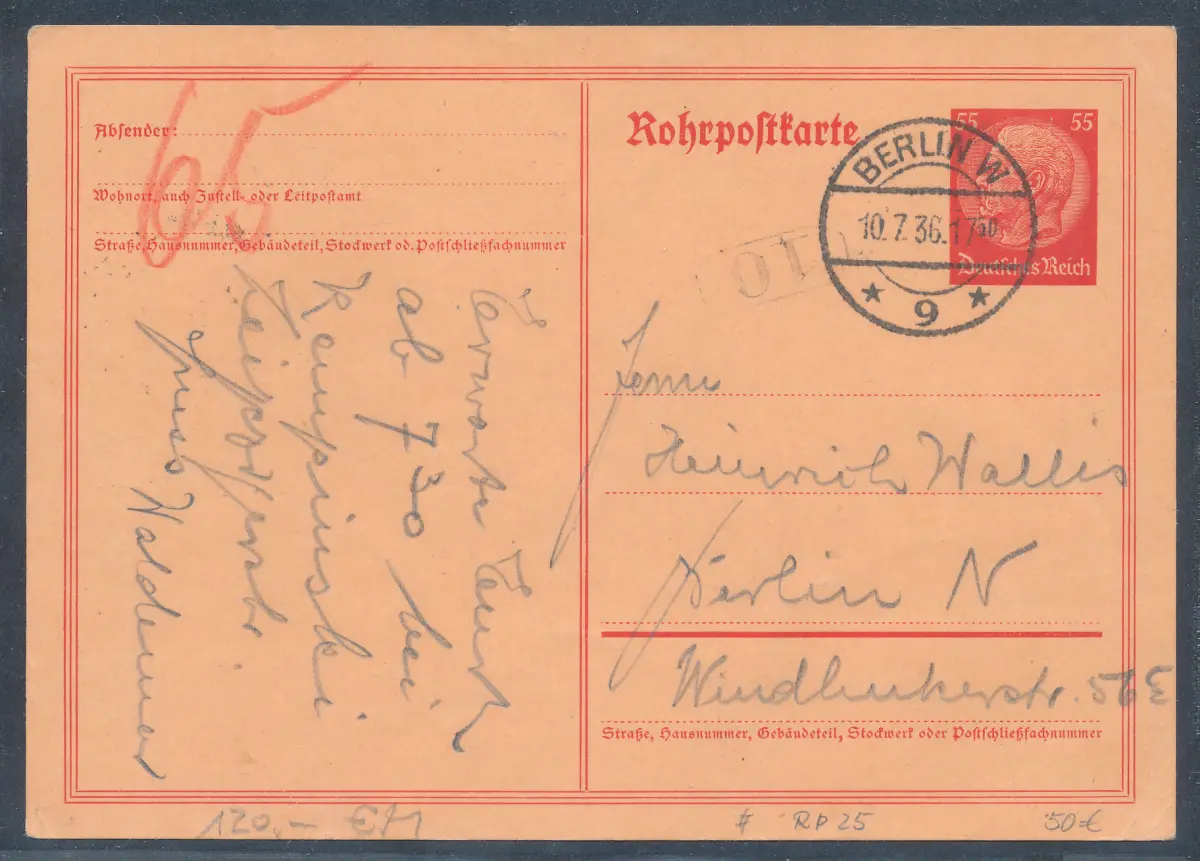 65
Absender:
Wohnort, auch Zustell- oder Leitpostamt
Straße, Hausnummer, Gebäudeteil, Stockwerk od. Postschließfachnummer
Erwarte Euch
ab 7 30 bei
Kempinski
Leipzigerstr.
Gruss Waldemar
Rohrpostkarte
55 55
Deutsches Reich
BERLIN W
10.7.36.17 50
* 9 *
Herrn
Heinrich Wallis
Berlin N
Windhukerstr. 56
Straße, Hausnummer, Gebäudeteil, Stockwerk oder Postschließfachnummer
120,-
# RP 25
50€